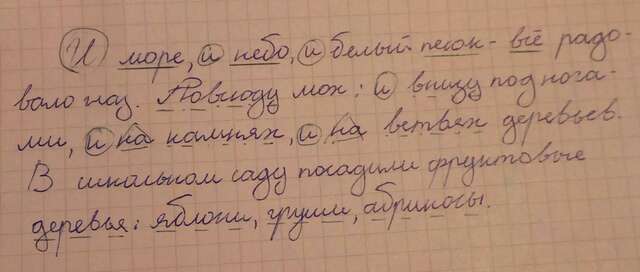 И море, и небо, и белый песок - всё радо-
вало глаз. Повсюду мох: и внизу под нога-
ми, и на камнях, и на ветвях деревьев.
В школьном саду посадили фруктовые
деревья: яблони, груши, абрикосы.